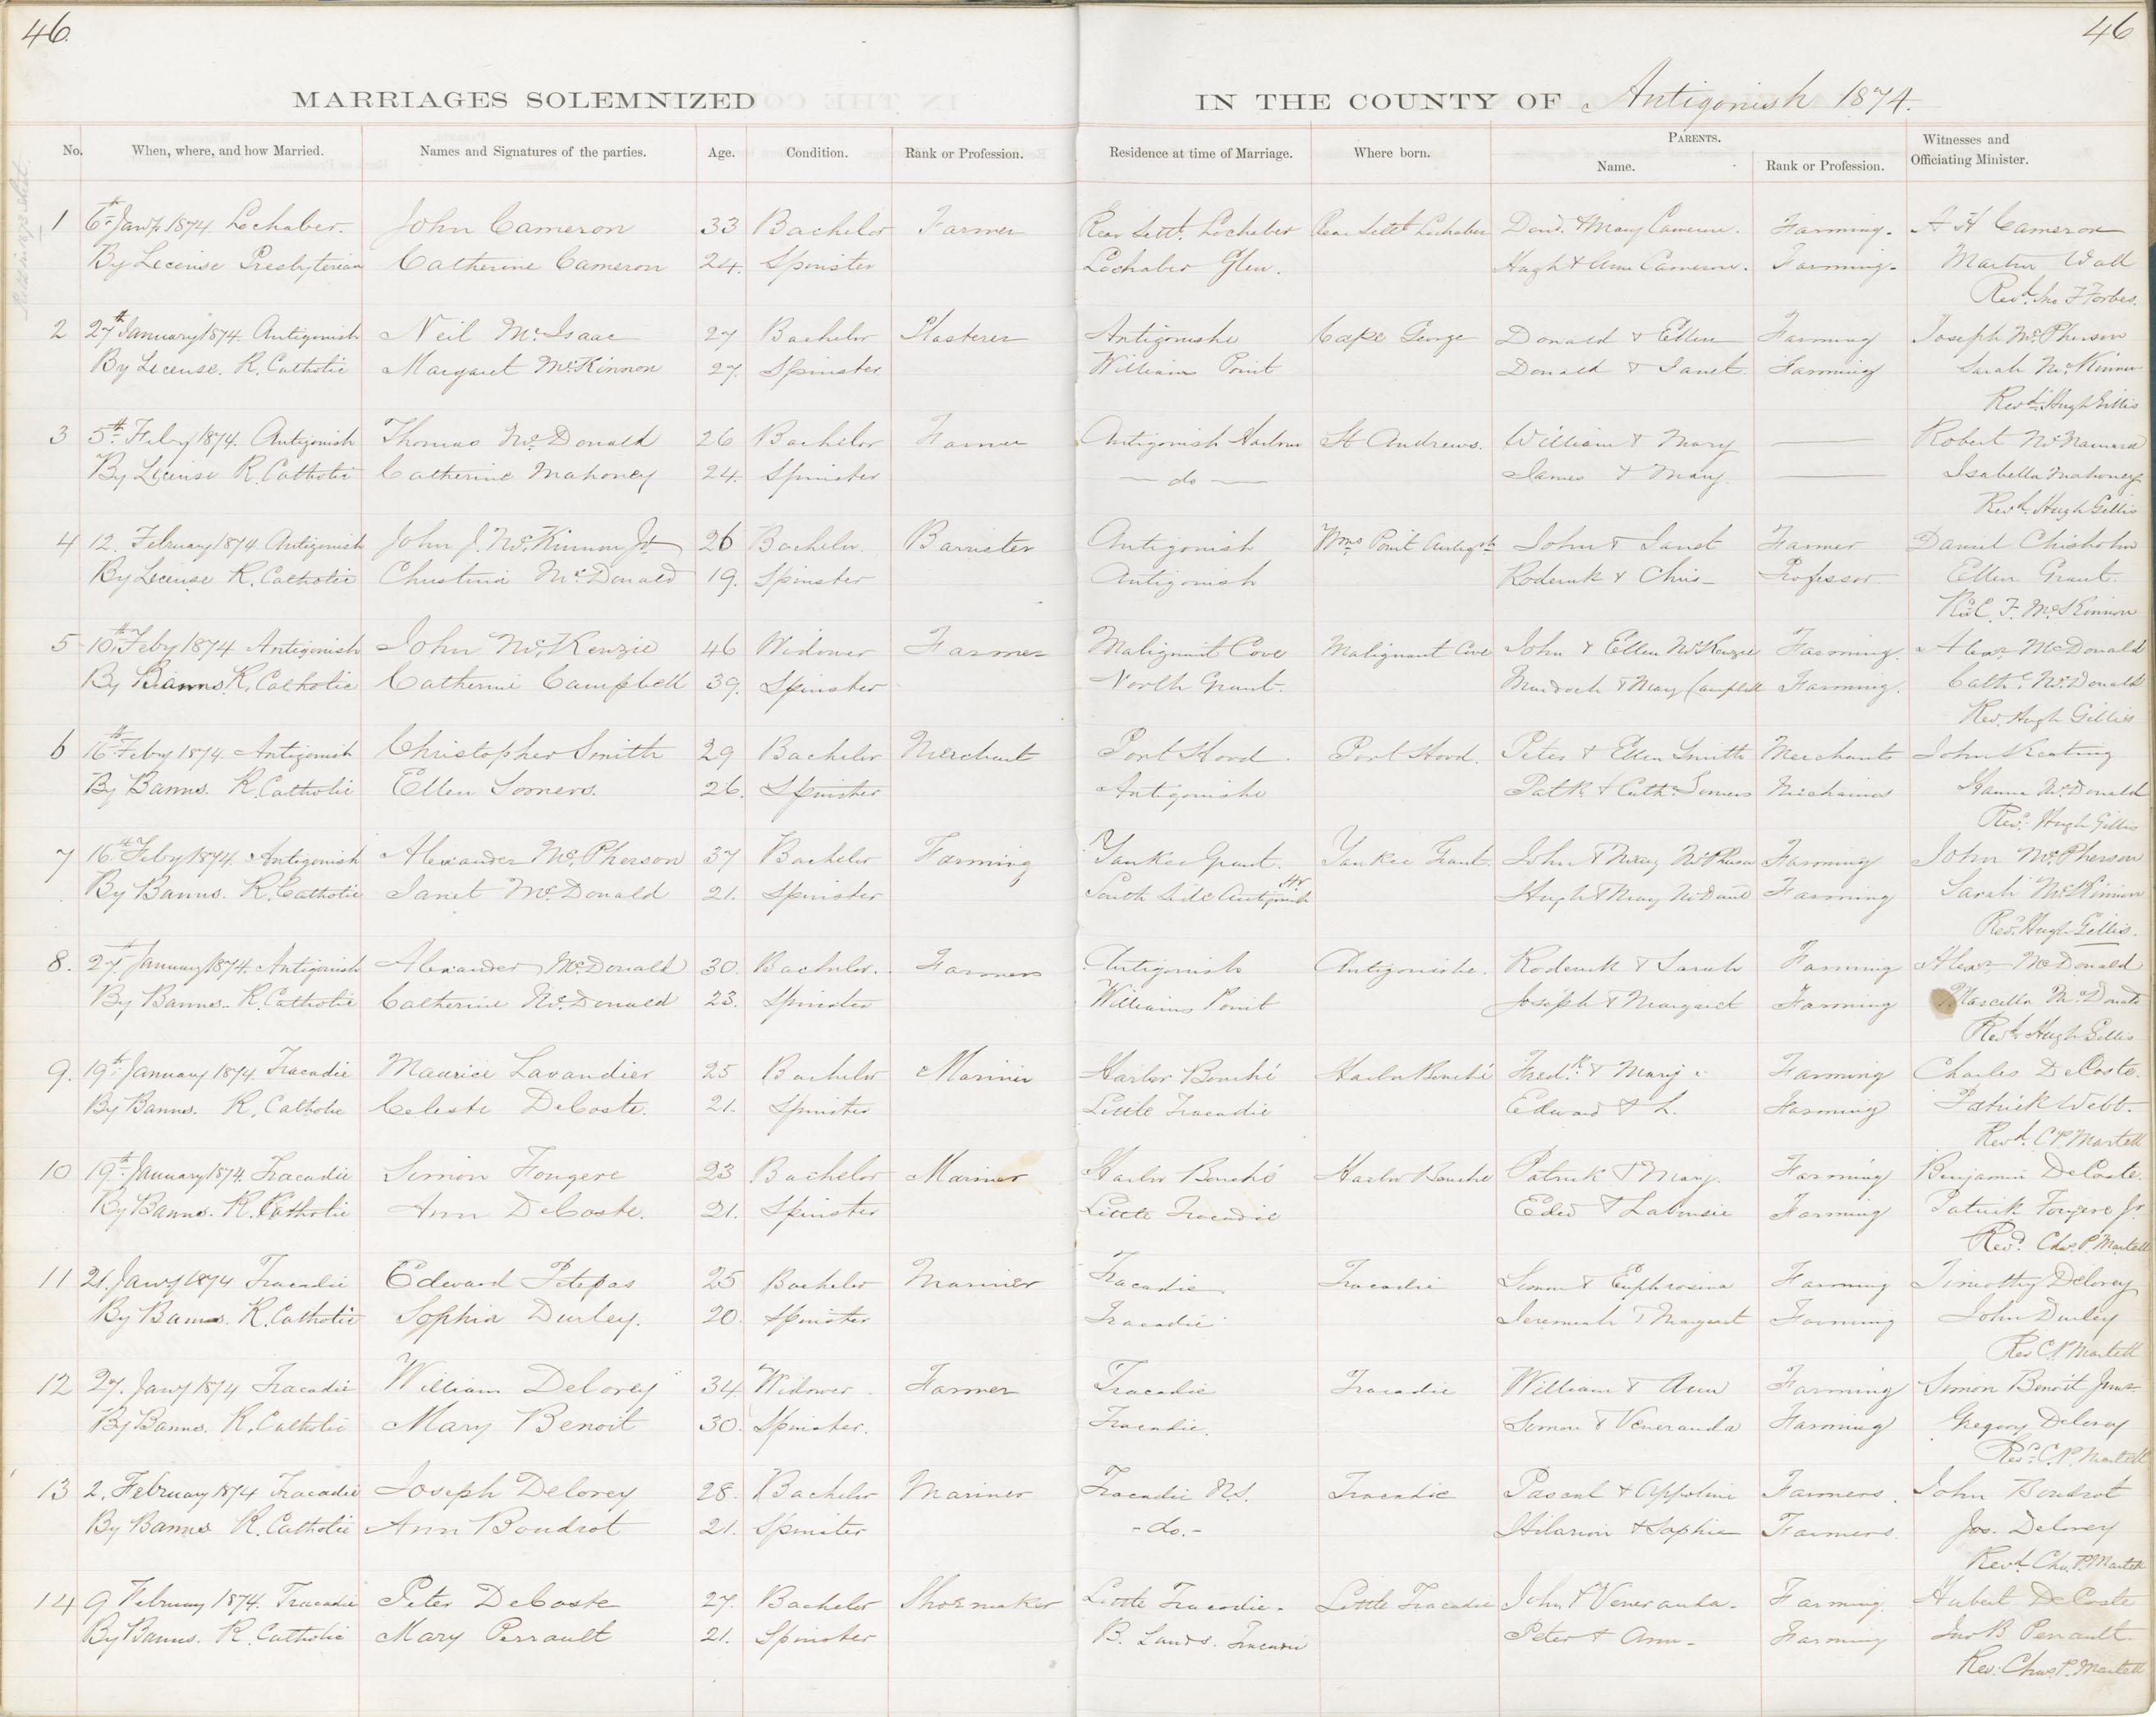 46.
46
MARRIAGES SOLEMNIZED IN THE COUNTY OF Antigonish 1874.
No. When, where, and how Married. Names and Signatures of the parties. Age. Condition. Rank or Profession. Residence at time of Marriage. Where born. PARENTS. Name. Rank or Profession. Witnesses and Officiating Minister.
1 6th Jany 1874 Lochaber. John Cameron 33 Bachelor Farmer Rear Settt. Lochaber Rear Settt Lochaber & Mary Cameron. Farming. A H Cameron
By License Presbyterian Catherine Cameron 24. Spinster Lochaber Glen. Hugh & Ann Cameron. Farming. Martin Wall
Revd. Jno F Forbes.
2 27th January 1874. Antigonish Neil McIsaac 27 Bachelor Plasterer Antigonishe Cape George Donald & Ellen Farming Joseph McPherson
By License. R. Catholic Margaret McKinnon 27. Spinster Williams Point Donald & Janet. Farming Sarah McKinnon
Revd. Hugh Gillis
3 5th Feby 1874. Antigonish Thomas McDonald 26 Bachelor Farmer Antigonish Harbour St Andrews. William & Mary Robert McNamara
By License R. Catholic Catherine Mahoney 24. Spinster — do — James & Mary. Isabella Mahoney
Revd. Hugh Gillis
4 12. February 1874 Antigonish John J. McKinnon Jr 26 Bachelor. Barrister Antigonish Wms Point Antigsh John & Janet Farmer Daniel Chisholm
By License R. Catholic Christina McDonald 19. Spinster Antigonish Roderick & Chris- Professor Ellen Grant.
F. McKinnon
5 10th Feby 1874 Antigonish John McKenzie 46 Widower Farmer Malignant Cove Malignant Cove John & Ellen McKenzie Farming. Alexr McDonald
By Banns. R. Catholic Catherine Campbell 39. Spinster North Grant. Murdoch & Mary Campbell Farming. Cathe. McDonald
Rev. Hugh Gillis
6 16th Feby 1874 Antigonish Christopher Smith 29 Bachelor Merchant Port Hood. Port Hood. Peter & Ellen Smith Merchants John Keating
By Banns. R. Catholic Ellen Somers. 26. Spinster Antigonishe Patk. & Cath. Somers Mechanics Hanna McDonald
Revd. Hugh Gillis
7 16th Feby 1874. Antigonish Alexander McPherson 37 Bachelor Farming Yankee Grant. Yankee Grant. John & Mary McPherson Farming John McPherson
By Banns. R. Catholic Janet McDonald 21. Spinster South Side Antigonish Hr Hugh & Mary McDond Farming Sarah McKinnon
Revd. Hugh Gillis.
8. 27th January 1874. Antigonish Alexander McDonald 30. Bachelor. Farmer Antigonish Antigonishe. Roderick & Sarah Farming Alexr McDonald
By Banns. R. Catholic Catherine McDonald 23. Spinster Williams Point Joseph & Margaret Farming Marcella McDonald
Revd. Hugh Gillis
9. 19th January 1874. Tracadie Maurice Lavandier 25 Bachelor Mariner Harbor Bouché Harbor Bouché Fredk. & Mary. Farming Charles DeCoste.
By Banns. R. Catholic Celeste DeCoste. 21. Spinster Little Tracadie Edward & L. Farming Patrick Webb.
Revd. C P Martell
10 19th January 1874. Tracadie Simon Fougere 23 Bachelor Mariner Harbor Bouché Harbor Bouché Patrick & Mary. Farming Benjamin DeCoste.
By Banns. R. Catholic Ann DeCoste. 21. Spinster Little Tracadie Edwd & Farming Patrick Fougere Jr
Revd. Chas. P. Martell
11 21. Jany 1874 Tracadie Edward Petepas 25 Bachelor Mariner Tracadie. Tracadie Simon & Euphrosine Farming Timothy Delorey
By Banns. R. Catholic Sophia Durley. 20. Spinster Tracadie Jeremiah & Margaret Farming John Durley
Rev C. P Martell
12 27. Jany 1874 Tracadie William Delorey 34 Widower. Farmer Tracadie Tracadie William & Ann Farming Simon Benoit Junr
By Banns. R. Catholic Mary Benoit 30. Spinster. Tracadie. Simon & Veneranda Farming Gregory Delorey
Revd. C. P. Martell
13 2. February 1874 Tracadie Joseph Delorey 28. Bachelor Mariner Tracadie N.S. Tracadie Pascal & Appoline Farmers. John Boudrot
By Banns R. Catholic Ann Boudrot 21. Spinster -do.- Hilarion & Sophia Farmers. Jos. Delorey
Revd. Chas. P. Martell
14 9 February 1874. Tracadie Peter DeCoste 27. Bachelor Shoemaker Little Tracadie. Little Tracadie John & Veneranda. Farming. Hubert DeCoste
By Banns. R. Catholic Mary Perrault 21. Spinster B. Lands. Tracadie Peter & Ann- Farming Jno B Perrault.
Rev. Chas. P. Martell